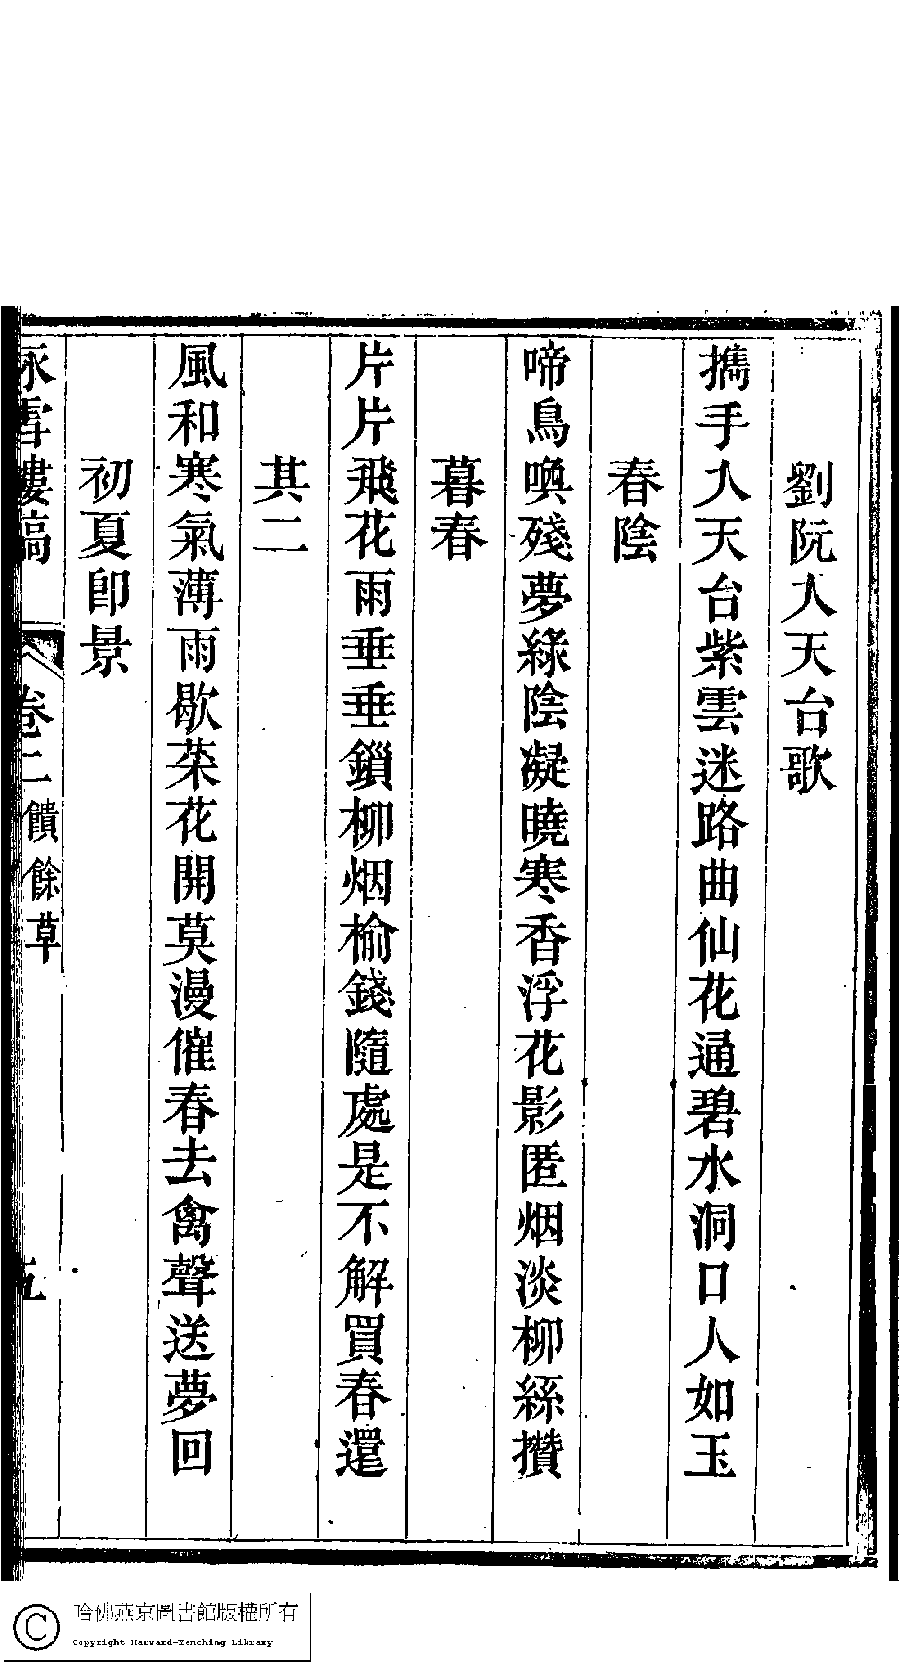 劉阮入天台歌
攜手入天台紫雲迷路曲仙花通碧水洞口人如玉
春陰
啼鳥喚殘夢綠陰凝曉寒香浮花影匿烟淡柳絲攢
暮春
片片飛花雨垂垂鎖柳烟榆錢隨處是不解買春還
其二
風和寒氣薄雨歇茶花開莫漫催春去禽聲送夢回
初夏卽景
咏雪樓稿 卷二饋餘草 五
哈佛燕京圖書館版權所有
Copyright Harvard-Yenching Library